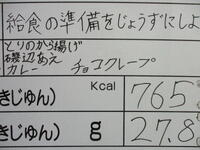 給食の準備をじょうずにしよ
とりのから揚げ
磯辺あえ
カレー チョコクレープ
きじゅん) Kcal 765
きじゅん) g 27.8